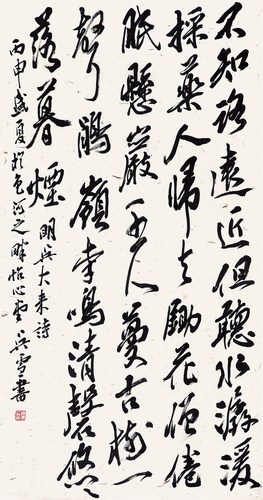 不知路遠近但聽水潺湲
採藥人歸去鋤花僧倦
眠懸巖千尺蔓古樹一
聲鵑嶺半鳴清磬悠々
落暮煙 明吳大來詩
丙申盛夏於河之畔怡心堂吳雪書